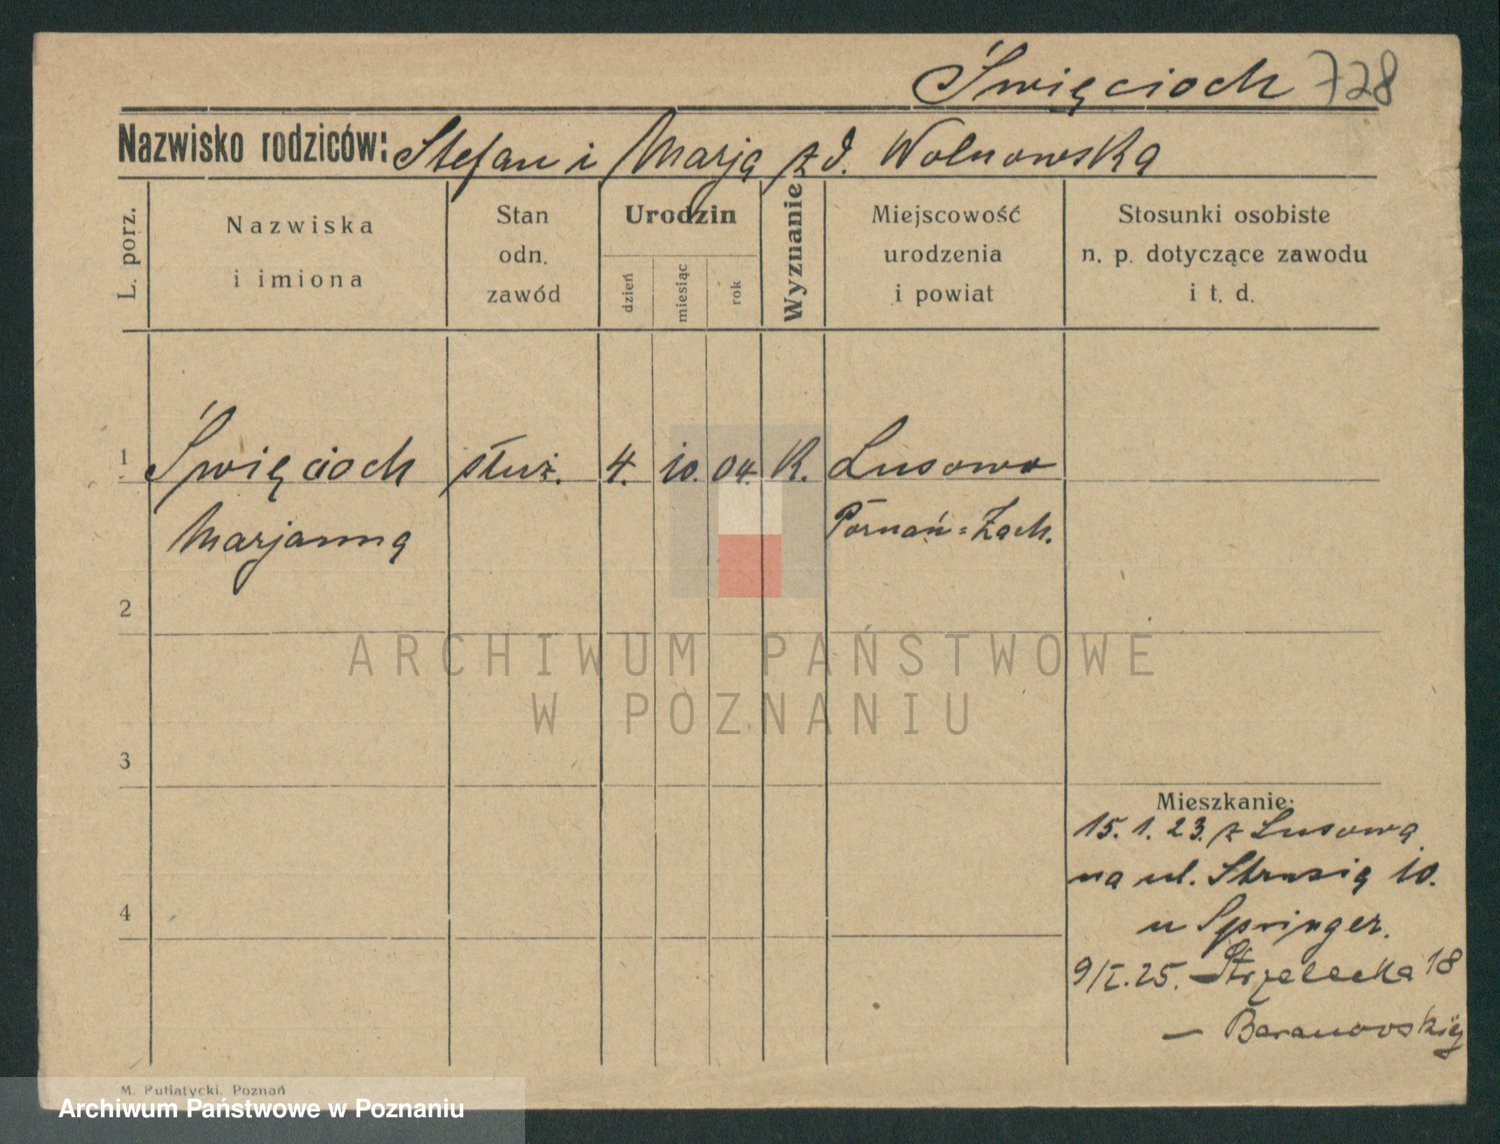 Święcioch 728
Nazwisko rodziców: Stefan i Marja zd. Wolnowska
L. porz.
Nazwiska
i imiona
Stan
odn.
zawód
Urodzin
dzień
miesiąc
rok
Wyznanie
Miejscowość
urodzenia
i powiat
Stosunki osobiste
n. p. dotyczące zawodu
i t. d.
1 Święcioch służ. 4. 10. 04. K. Lusowo
Marjanna Poznań=Zach.
2
3
4
Mieszkanie:
15. 1. 23. z Lusowa
na ul. Strusia 10.
u Springer.
9/I. 25. Strzelecka 18
— Baranowskiej
M. Putiatycki, Poznań
ARCHIWUM PAŃSTWOWE
W POZNANIU
Archiwum Państwowe w Poznaniu